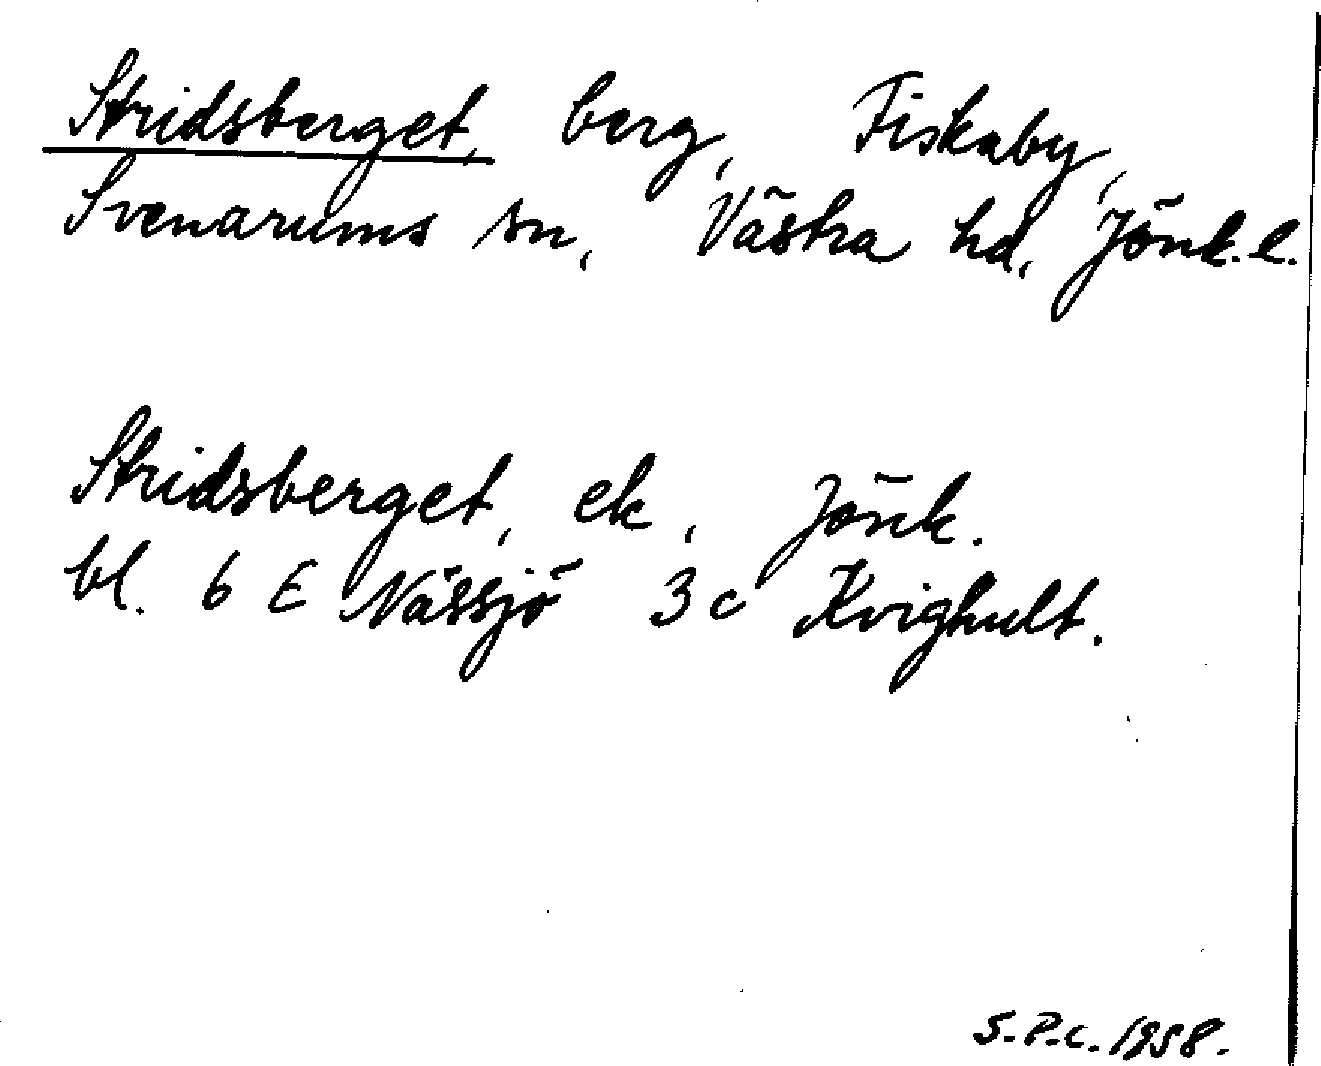 Stridsberget, berg, Fiskaby,
Svenarums sn, Västra hd, Jönk.l.
Stridsberget, ek, Jönk.
bl. 6 E Nässjö 3c Kvighult.
S.P.C. 1958.